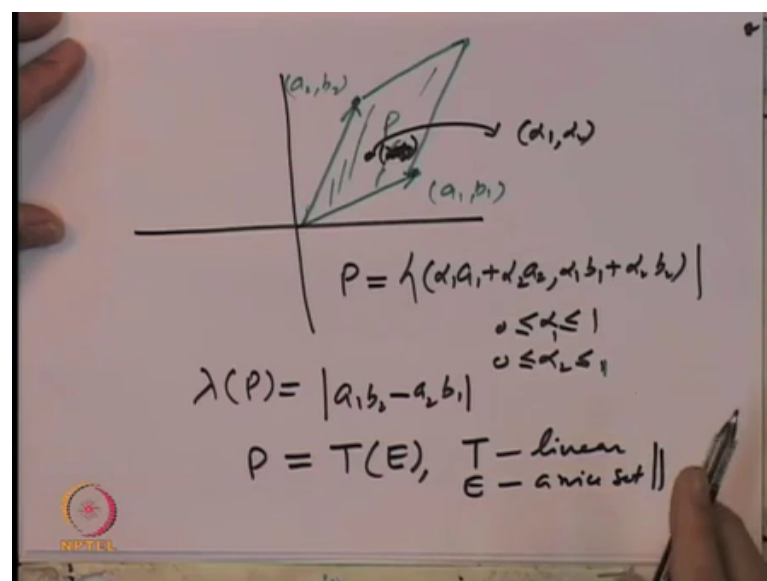 (a₂,b₂)
P
(α₁,α₂)
(a₁,b₁)
P = {(α₁a₁+α₂a₂, α₁b₁+α₂b₂) |
0 ≤ α₁ ≤ 1
0 ≤ α₂ ≤ 1
λ(P) = |a₁b₂-a₂b₁|
P = T(E), T - linear
E - a nice set ||
NPTEL